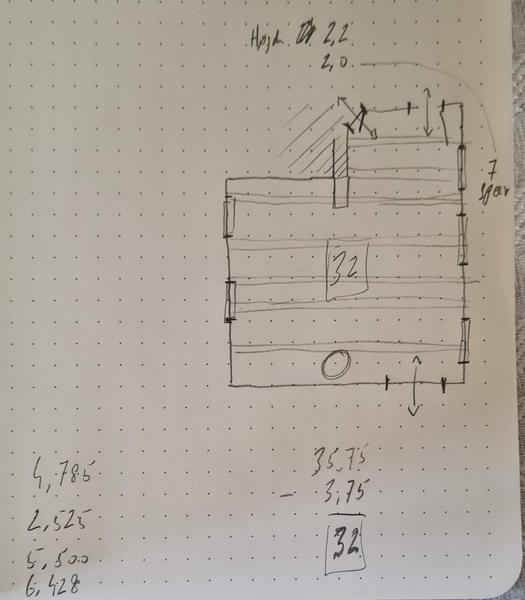 High 2,2
2,0
7
32
4,785
2,525
5,500
6,428
35,75
- 3,75
32